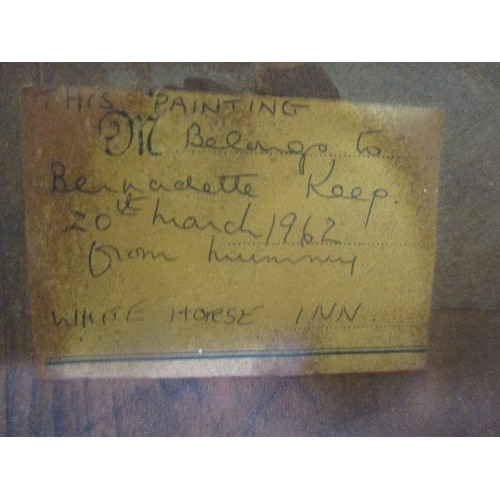 THIS PAINTING
M Belongs to
Bernadette Keep.
20th March 1962
from Mummy
WHITE HORSE INN